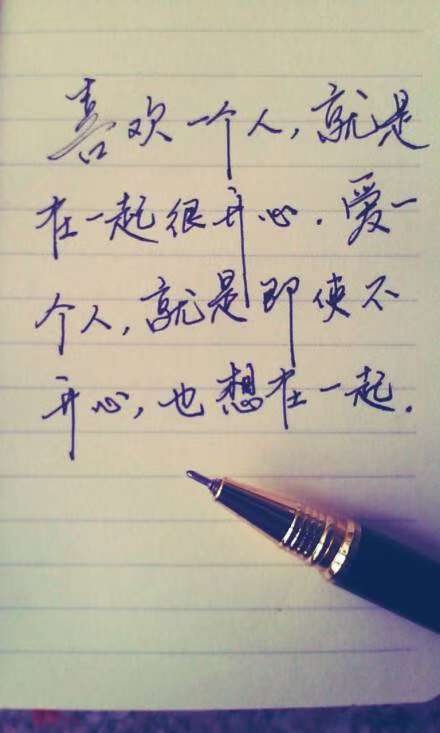 喜欢一个人,就是
在一起很开心.爱一
个人,就是即使不
开心,也想在一起.